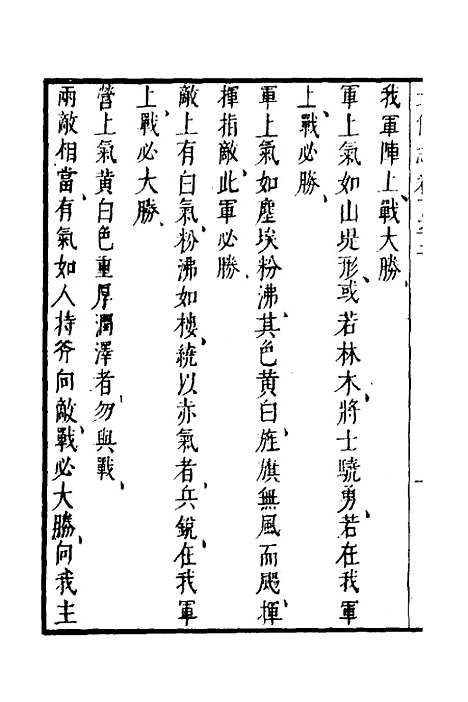 我軍陣上、戰大勝、
軍上氣如山堤形、或若林木、將士驍勇、若在我軍
上、戰必勝、
軍上氣如塵埃粉沸、其色黃白、旌旗無風而颺、揮
揮指敵、此軍必勝、
敵上有白氣、粉沸如樓、繞以赤氣者、兵銳、在我軍
上、戰必大勝、
營上氣黃白色重厚潤澤者、勿與戰、
兩敵相當、有氣如人持斧向敵、戰必大勝、向我主